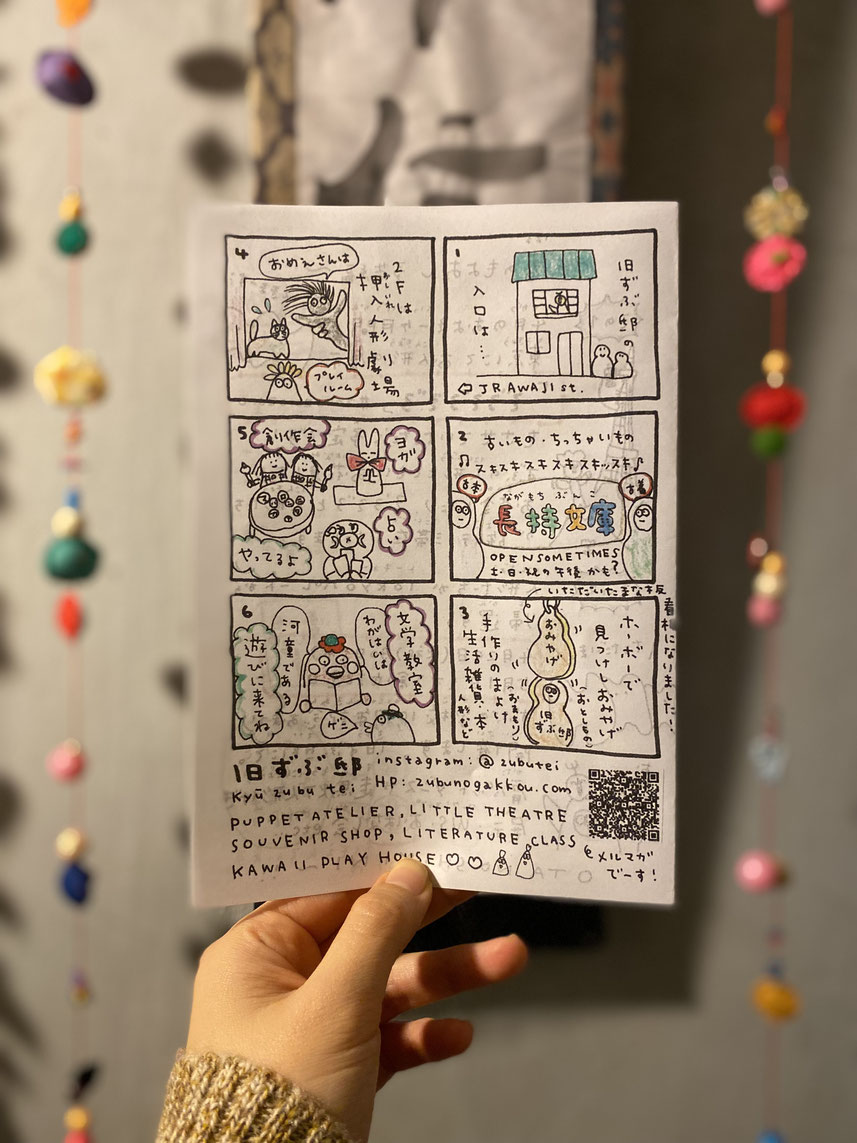 1
旧ずぶ邸の
入口は…
⇦ JR AWAJI st.
2
古いもの・ちっちゃいもの
♫スキスキスキスキスキッスキ♪
古本
古着
ながもち ぶんこ
長持文庫
OPEN SOMETIMES
土・日・祝の午後かも?
3
ホーボーで
見つけしおみやげ
(おとしもの)
おみやげ
旧ずぶ邸
手作りのまよけ
(おまもり)
生活雑貨・本
人形など
いただいたまな板
看板になりました!
4
2Fは
押入れ人形劇場
おしいれ
おめえさんは
プレイルーム
5
創作会
ヨガ
占い
やってるよ
6
文学教室
わがはいは
河童である
ゲシ
遊びに来てね
旧ずぶ邸
instagram: @zubutei
Kyū zubu tei
HP: zubunogakkou.com
PUPPET ATELIER, LITTLE THEATRE
SOUVENIR SHOP, LITERATURE CLASS
KAWAII PLAY HOUSE ♡♡
メルマガ
でーす!